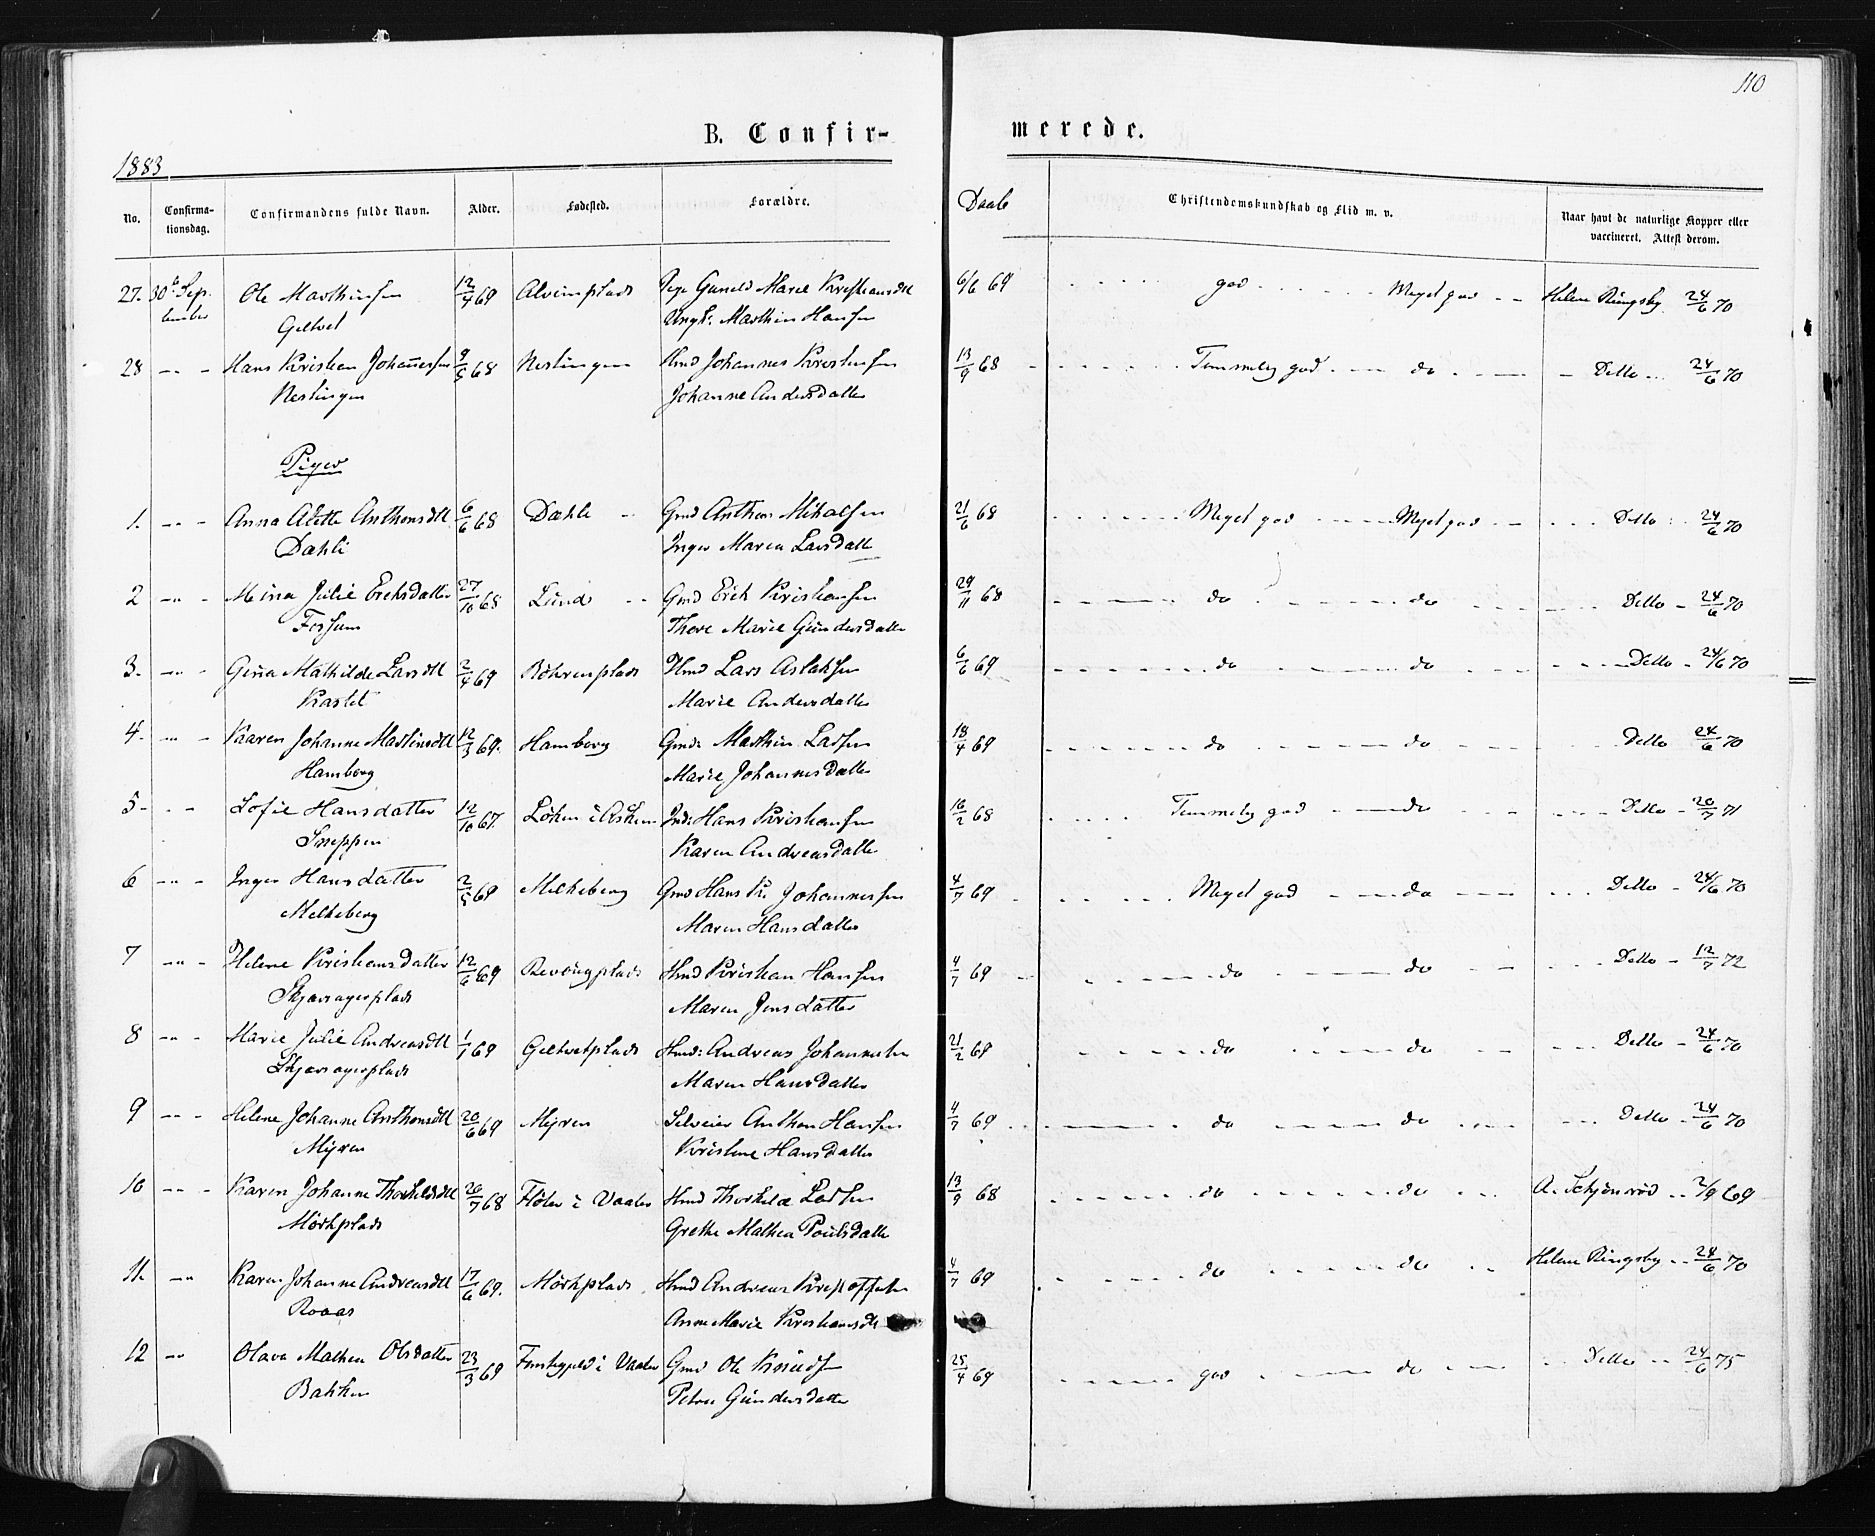 110
B. Confir- merede.
1883
No. Confirma-tionsdag. Confirmandens fulde Navn. Alder. Fødested. Forældre. Daab Christendomskundskab og Flid m. v. Naar havt de naturlige Kopper eller vaccineret. Attest derom.
27. 30te Sep- Ole Marthinsen 12/4 69 Alvimplads Pige Gunild Marie Kristiansdtt 6/6 69 god Meget god Helene Ringsby 24/6 70
tember Geltvet Ungk: Marthin Hansen
28 Hans Kristian Johannessen 9/5 68 Nestingen Hmd Johannes Kristensen 13/9 68 Temmelig god do Ditto 24/6 70
Nestingen Johanne Andersdatter
Piger
1. Anna Adette Anthonsdtt 6/6 68 Dæhli Gmd Anthon Mikalsen 21/6 68 Meget god Meget god Ditto 24/6 70
Dæhli Inger Maren Larsdatter
2 Mina Julie Eriksdatter 27/10 68 Lund Gmd Erik Kristiansen 29/11 68 do do Ditto 24/6 70
Fossum Thore Marie Gundersdatter
3. Gina Mathilde Larsdtt 2/4 69 Röhrenplads Hmd Lars Aslaksen 6/6 69 do do Ditto 24/6 70
Kastet Marie Andersdatter
4. Kaaren Johanne Martinsdtt 12/3 69. Hamborg Gmd: Marthin Larsen 18/4 69 do do Ditto 24/6 70
Hamborg Marie Johannesdatter
5 Sofie Hansdatter 12/10 67. Löken i Askim Ind: Hans Kristiansen 16/2 68 Temmelig god do Ditto 20/7 71
Sneppen Karen Andreasdatter
6 Inger Hansdatter 2/5 69 Melkeberg Gmd Hans Kr. Johannessen 4/7 69 Meget god do Ditto 24/6 70
Melkeberg Maren Hansdatter
7 Helene Kristiansdatter 12/6 69 Revougplads Hmd Kristian Hansen 4/7 69 do do Ditto 12/7 72
Skjæragerplads Maren Jensdatter
8 Marie Julie Andreasdtt 1/1 69 Geltvetplads Hmd: Andreas Johannesen 21/2 69 do do Ditto 24/6 70
Skjæragerplads Maren Hansdatter
9 Helene Johanne Anthonsdtt 20/6 69 Myren Selveier Anthon Hansen 4/7 69 do do Ditto 24/6 70
Myren Kristine Hansdatter
10 Karen Johanne Thorkildsdtt 26/7 68 Flöter i Vaaler Hmd Thorkild Larsen 13/9 68 do do A. Schjönröd 2/9 69
Mörkplads Grethe Mathea Poulsdatter
11. Karen Johanne Andreasdtt 17/6 69. Mörkplads Hmd Andreas Kristoffersen 4/7 69 do do Helene Ringsby 24/6 70
Roaas Anne Marie Kristiansdt
12 Olava Mathea Olsdatter 23/3 69 i Vaaler Gmd Ole Knudsen 25/4 69 god do Ditto 24/6 75
Bakken Petrea Gundersdatter